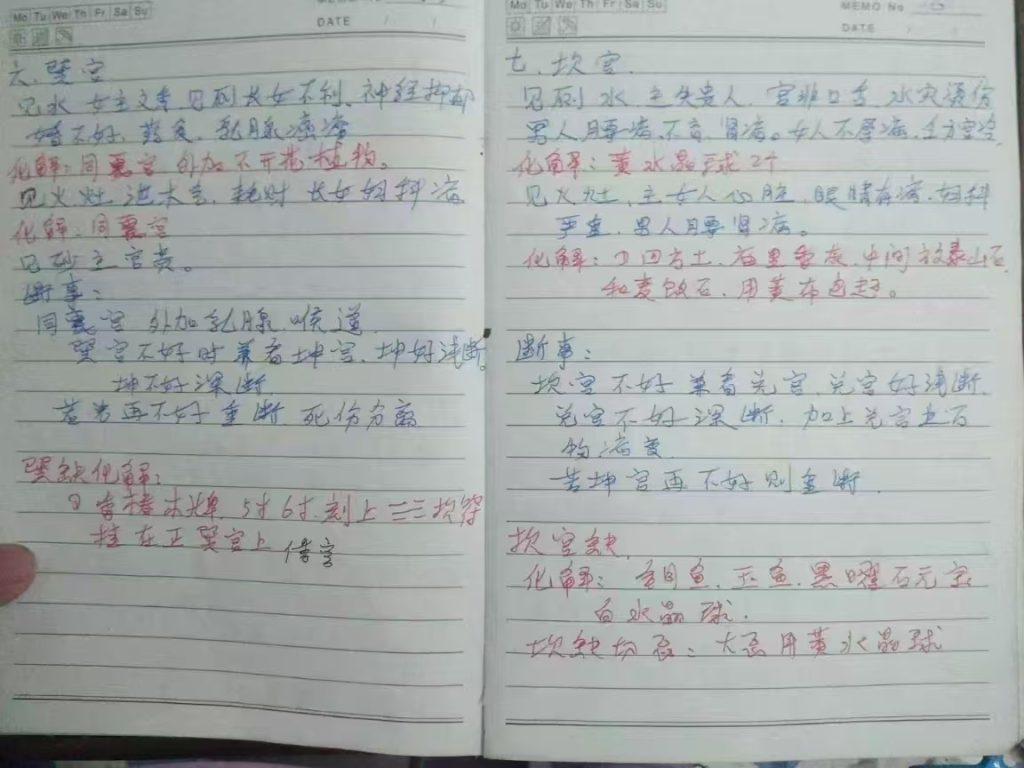 Mo Tu We Th Fr Sa Su
DATE / /
六、巽宫
见水 女主文秀 见砂长女不利、神经抑郁
婚不好、乳腺病
化解：同震宫 外加不开花植物。
见火灶 泄木气、耗财 长女妇科病
化解：同震宫
见砂主官贵。
断事：
同震宫 外加乳腺、喉道.
巽宫不好时兼看坤宫、坤好浅断
坤不好深断
若再不好重断、死伤分离
巽缺化解：
木牌、5寸6寸、刻上 坎符
挂在正巽宫上
Mo Tu We Th Fr Sa Su
MEMO No
DATE / /
七、坎宫.
见砂 水 主失贵人、官非口舌 水灾
男人腰病、不育、肾病。女人不孕病、子宫冷
化解：黄水晶球2个
见火灶、主女人心脏、眼睛有病、妇科
严重、男人腰肾病。
化解：四方土、中间放泰山石
和麦饭石、用黄布包起。
断事：
坎宫不好兼看兑宫、兑宫好浅断、
兑宫不好深断、加上兑宫
若坤宫再不好则重断.
坎宫缺、
化解：鱼、玉鱼、黑曜石元宝
白水晶球.
坎缺切忌：大忌用黄水晶球